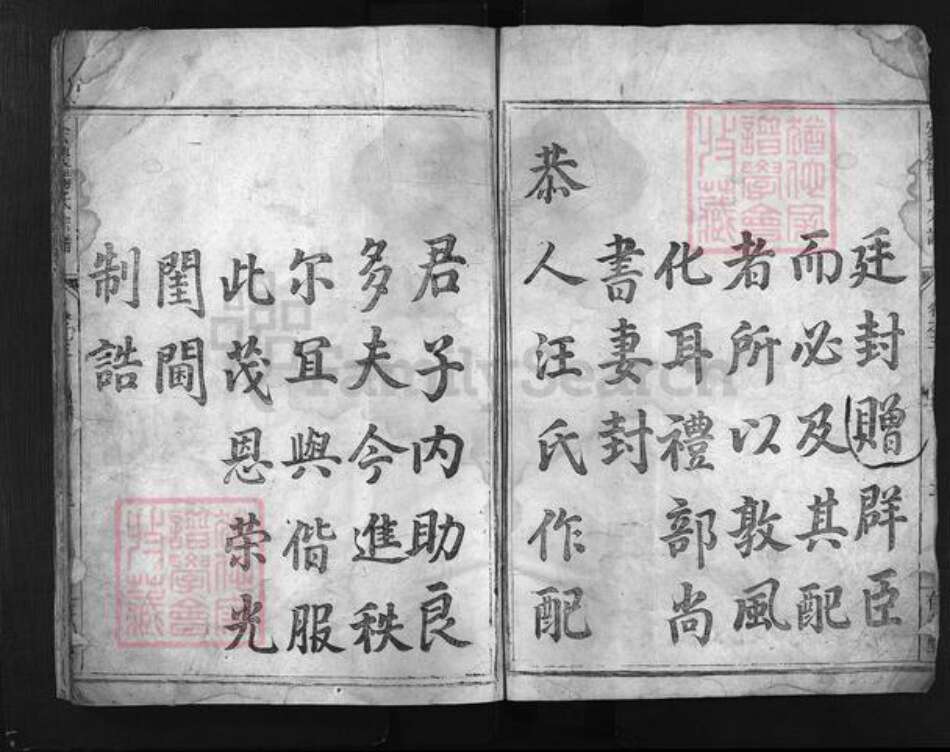 廷封贈群臣
而必及其配
者所以敦風
化耳禮部尚
書妻封
恭人汪氏作配
君子內助良
多夫今進秩
尔宜與偕服
此茂恩荣光
閨閫
制誥
FamilySearch
譜學會
收藏
譜學會
收藏